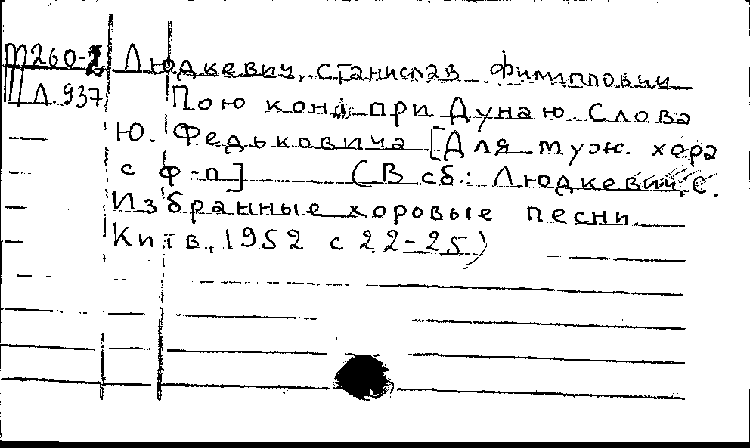 М260-2 Людкевич, Станислав Филиппович
Л.937 Пою коні при Дунаю. Слова
Ю. Федьковича [Для муж. хора
с ф-п] (В сб.: Людкевич, С.
Избранные хоровые песни
Київ, 1952 с 22-25)